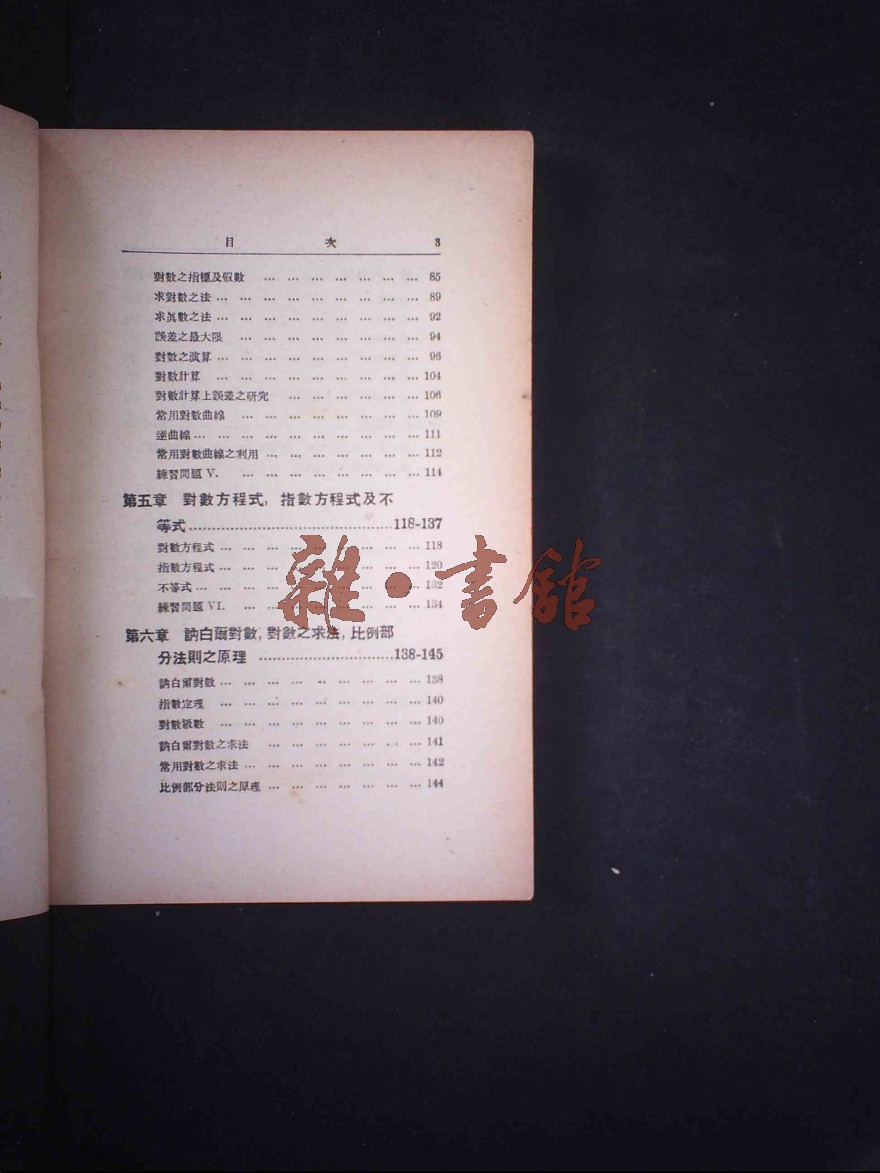 目 次 3
對數之指標及假數 … … … … … … … 85
求對數之法 … … … … … … … … … 89
求眞數之法 … … … … … … … … … 92
誤差之最大限 … … … … … … … … 94
對數之演算 … … … … … … … … … 96
對數計算 … … … … … … … … … 104
對數計算上誤差之研究 … … … … … … 106
常用對數曲線 … … … … … … … … 109
逆曲線 … … … … … … … … … … 111
常用對數曲線之利用 … … … … … … … 112
練習問題 V. … … … … … … … … 114
第五章 對數方程式, 指數方程式及不
等式 ……………………………… 118-137
對數方程式 … … … … … … … … … 118
指數方程式 … … … … … … … … … 120
不等式 … … … … … … … … … … 132
練習問題 VI. … … … … … … … … 134
第六章 訥白爾對數, 對數之求法, 比例部
分法則之原理 …………………… 138-145
訥白爾對數 … … … … … … … … … 138
指數定理 … … … … … … … … … 140
對數級數 … … … … … … … … … 140
訥白爾對數之求法 … … … … … … … 141
常用對數之求法 … … … … … … … … 142
比例部分法則之原理 … … … … … … … 144
雜·書館